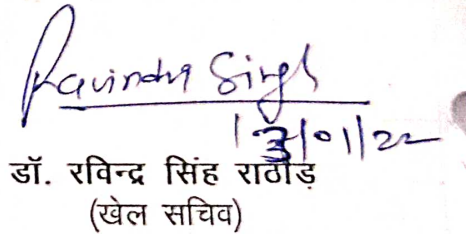 Ravindra Singh
13/01/22
डॉ. रविन्द्र सिंह राठौड़
(खेल सचिव)